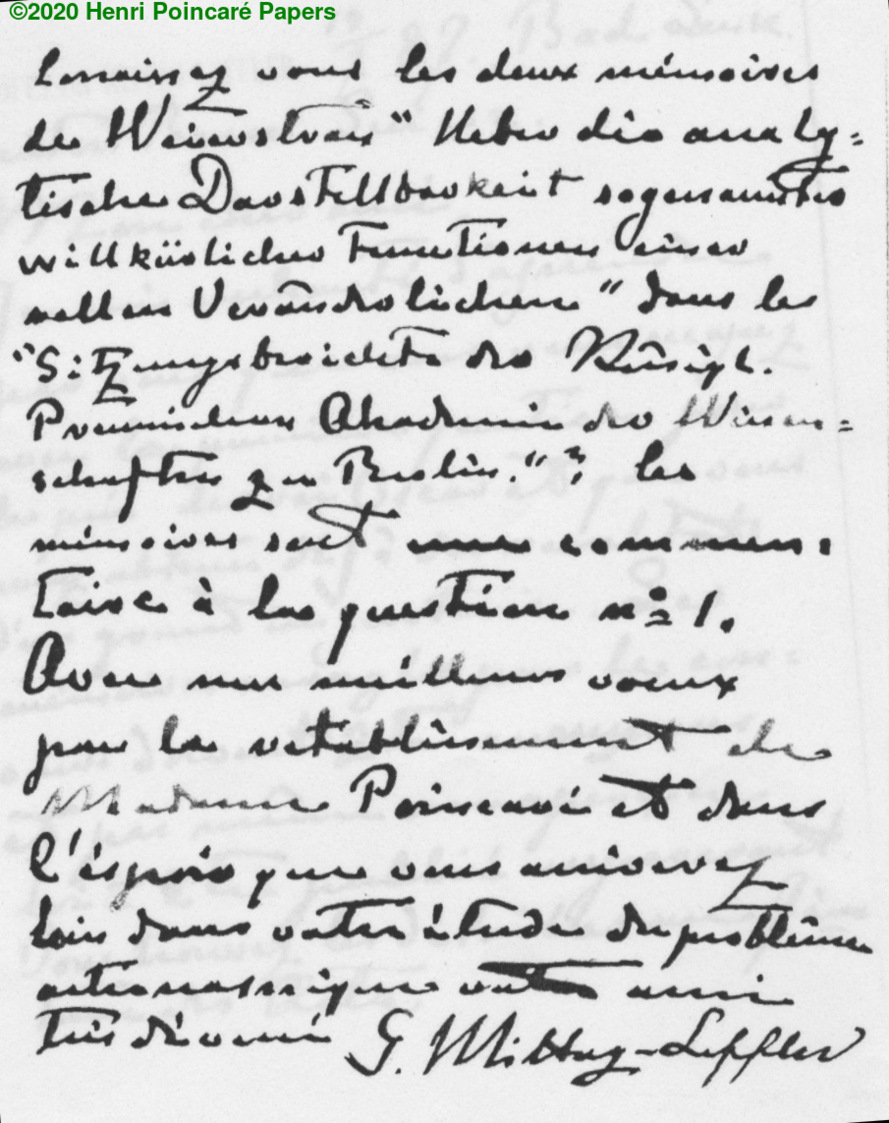 ©2020 Henri Poincaré Papers
Connaissez vous les deux mémoires
de Weierstrass "Ueber die analy=
tische Darstellbarkeit sogenannter
willkürlicher Functionen einer
reellen Veränderlichen" dans les
"Sitzungsberichte der Königl.
Preussischen Akademie der Wissen=
schaften zu Berlin."? Les
mémoires sont une commen-
taire à la question nº 1.
Avec mes meilleurs voeux
pour le rétablissement de
Madame Poincaré et dans
l'éspoir que vous arriverez
loin dans votre étude du problême
astronomique votre ami
très dévoué G. Mittag-Leffler